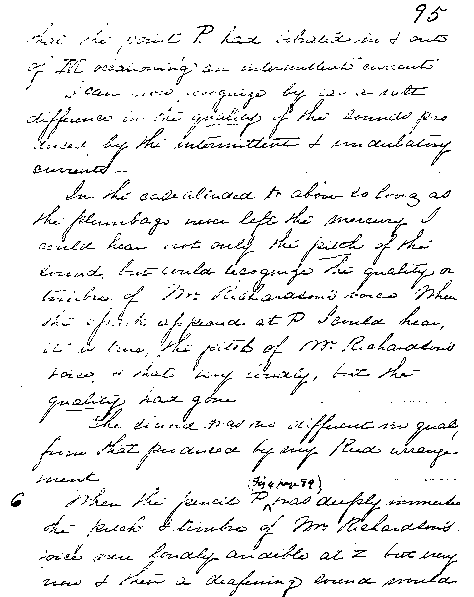 95
that the point P. had vibrated in & out
of M occasioning an intermittent current
I can now recognize by ear a
difference in the quality of the sounds pro
duced by the intermittent & undulatory
currents —
In the case alluded to above so long as
the plumbago never left the mercury I
could hear not only the pitch of the
sound, but could recognize the quality or
timbre of Mr Richardson's voice When
the spark appeared at P I could hear,
it is true, the pitch of Mr Richardson's
voice, & that very loudly, but the
quality had gone
The sound was no different in quality
from that produced by my Reed arrange-
ment
(Fig 4 page 89)
6 When the pencil P was deeply immersed
the pitch & timbre of Mr Richardson's
voice were loudly audible at Z but every
now & then a deafening sound would